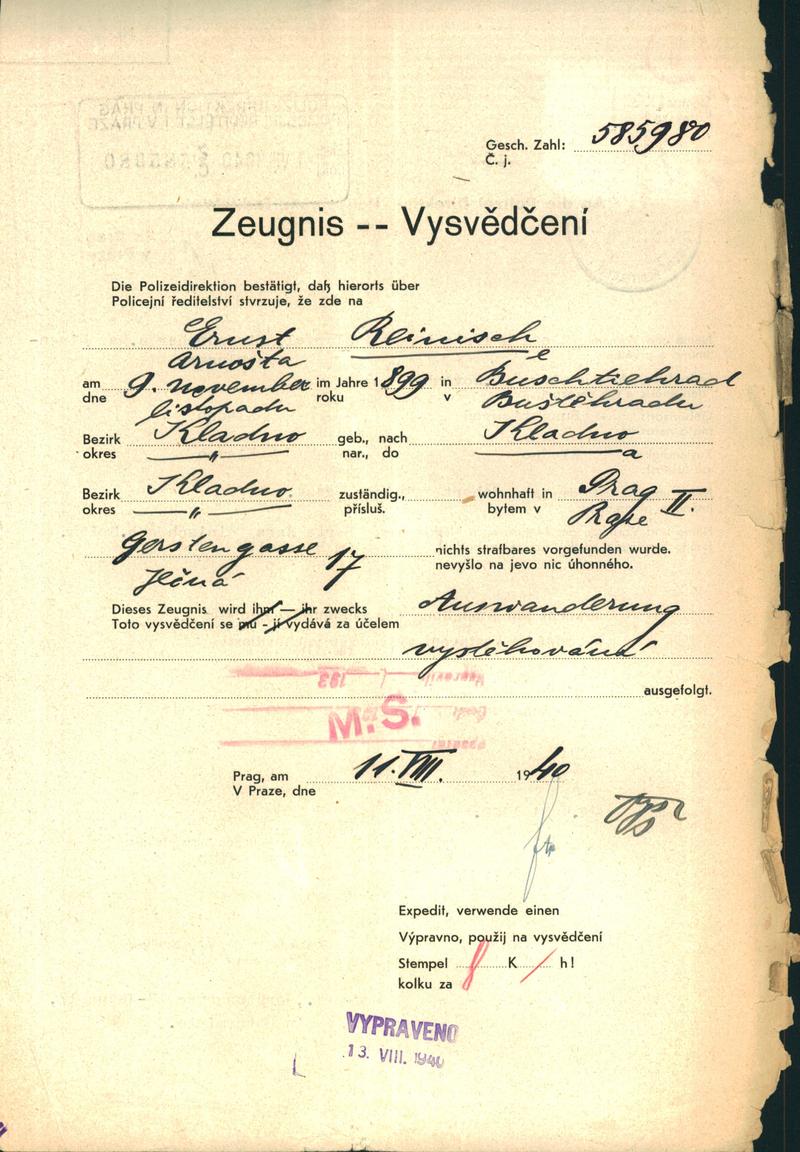 Gesch. Zahl: 585980
Č. j.
Zeugnis -- Vysvědčení
Die Polizeidirektion bestätigt, daß hierorts über
Policejní ředitelství stvrzuje, že zde na
Ernst Reinisch
Arnošta e
am 9. november im Jahre 1899 in Buschtiehrad
dne listopadu roku v Buštěhradu
Bezirk Kladno geb., nach Kladno
okres " nar., do a
Bezirk Kladno zuständig., wohnhaft in Prag II.
okres " přísluš. bytem v Praze
Gerstengasse 17 nichts strafbares vorgefunden wurde.
Ječná nevyšlo na jevo nic úhonného.
Dieses Zeugnis wird ihm — ihr zwecks Auswanderung
Toto vysvědčení se mu - jí vydává za účelem
vystěhování
ausgefolgt.
M.S.
Prag, am 11. VIII. 1940
V Praze, dne
Expedit, verwende einen
Výpravno, použij na vysvědčení
Stempel 8 K / h!
kolku za
VYPRAVENO
13. VIII. 1940